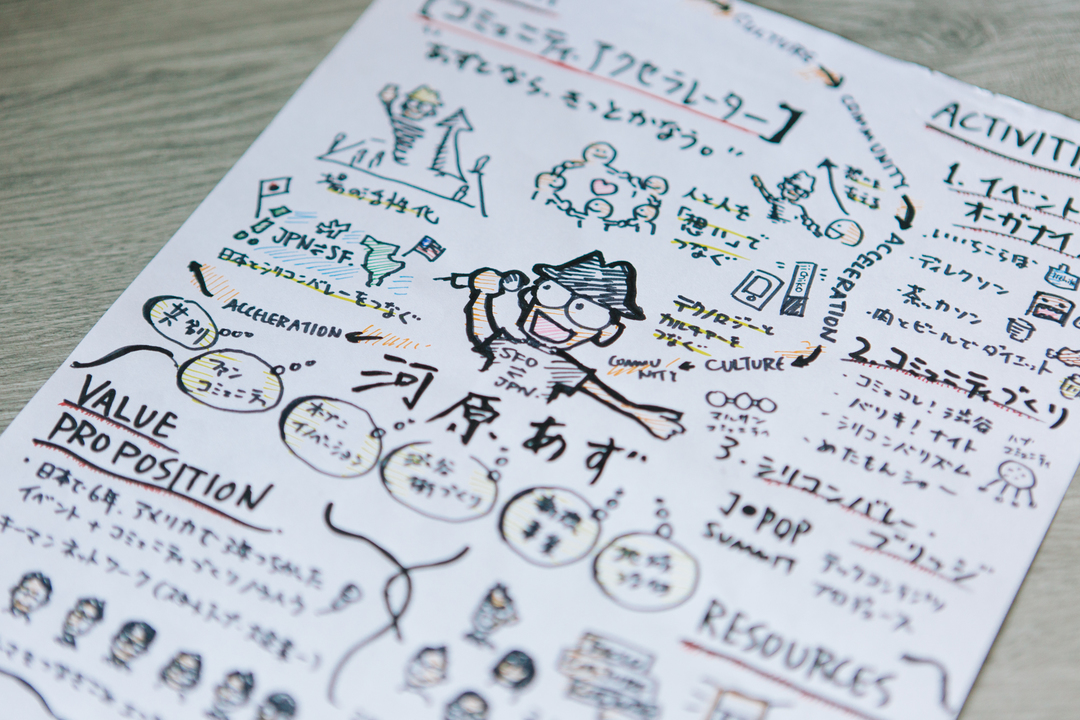 CULTURE
COMMUNITY
ACCELERATION
CULTURE
COMMU
NITY
ACCELERATION
【コミュニティ アクセラレーター】
あずとなら、きっとかなう。"
場の活性化
人と人を
「想い」で
つなぐ
JPN⇄SF.
日本とシリコンバレーをつなぐ
テクノロジーと
カルチャーを
つなぐ
SFO
JPN
河原あず
共創
ファン
コミュニティ
オープン
イノベーション
渋谷
街づくり
新規
事業
地域
コラボ
VALUE
PROPOSITION
・日本で6年、アメリカで
イベント+コミュニティづくりノウハウ
キーマンネットワーク
ACTIVITI
1. イベント
オーガナイ
・いいちこらぼ
・ディルクソン
・茶ッカソン
・肉とビールでダイエット
2. コミュニティづくり
・コミュコレ!渋谷
・バリキ!ナイト
シリコンバリズム
・めたもんショー
ハブ
コミュニティ
3. シリコンバレー
ブリッジ
J・POP
SUMMIT
テックコンテンツ
プロデュース
RESOURCES